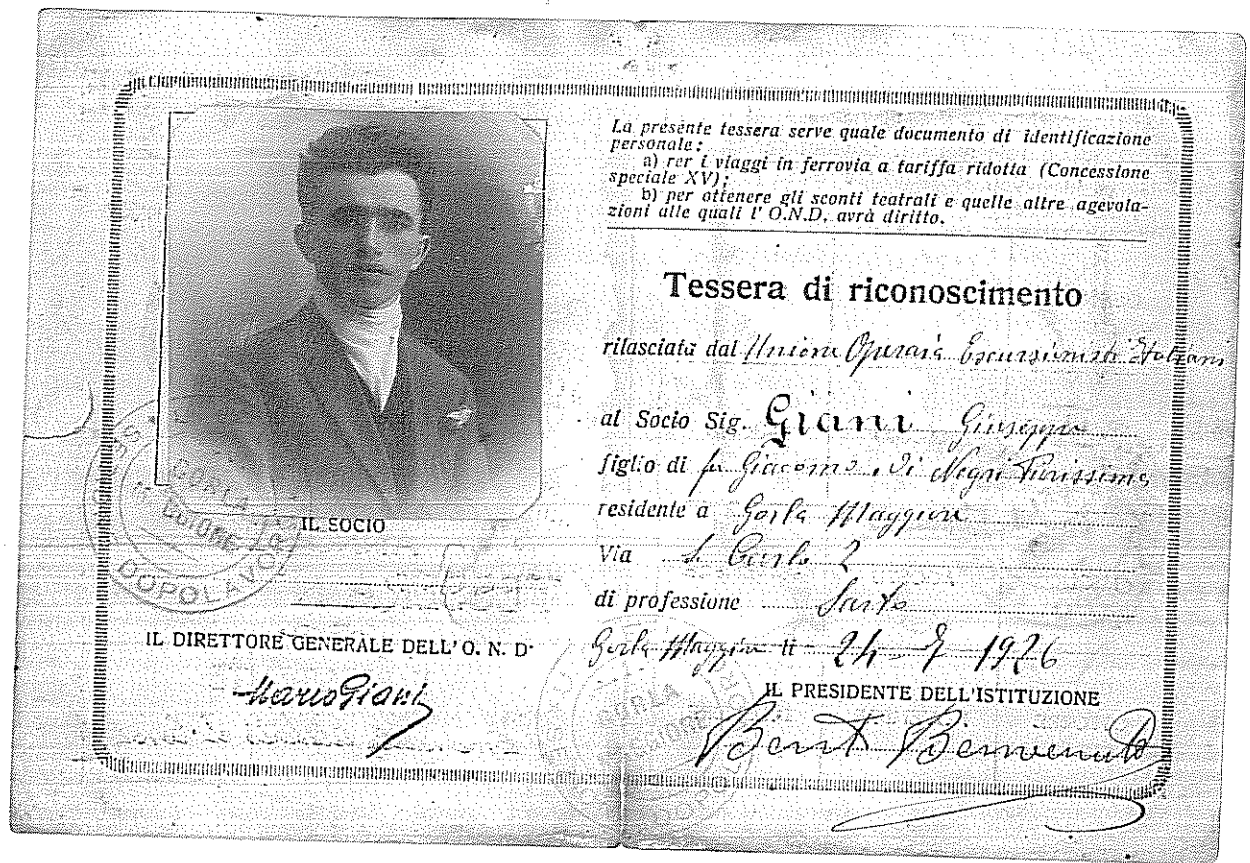 La presente tessera serve quale documento di identificazione
personale:
a) rer i viaggi in ferrovia a tariffa ridotta (Concessione
speciale XV);
b) per ottenere gli sconti teatrali e quelle altre agevola-
zioni alle quali l'O.N.D. avrà diritto.
Tessera di riconoscimento
rilasciata dal Unione Operaia Escursionisti Italiani
al Socio Sig. Giani Giuseppe
figlio di fu Giacomo di Negri
residente a Gorla Maggiore
Via S. Carlo 2
di professione Sarto
Gorla Maggiore li 24 - 7 1926
IL PRESIDENTE DELL'ISTITUZIONE
Benvenuto
IL SOCIO
GORLA
DOPOLAVORO
IL DIRETTORE GENERALE DELL'O. N. D.
Mario Giani